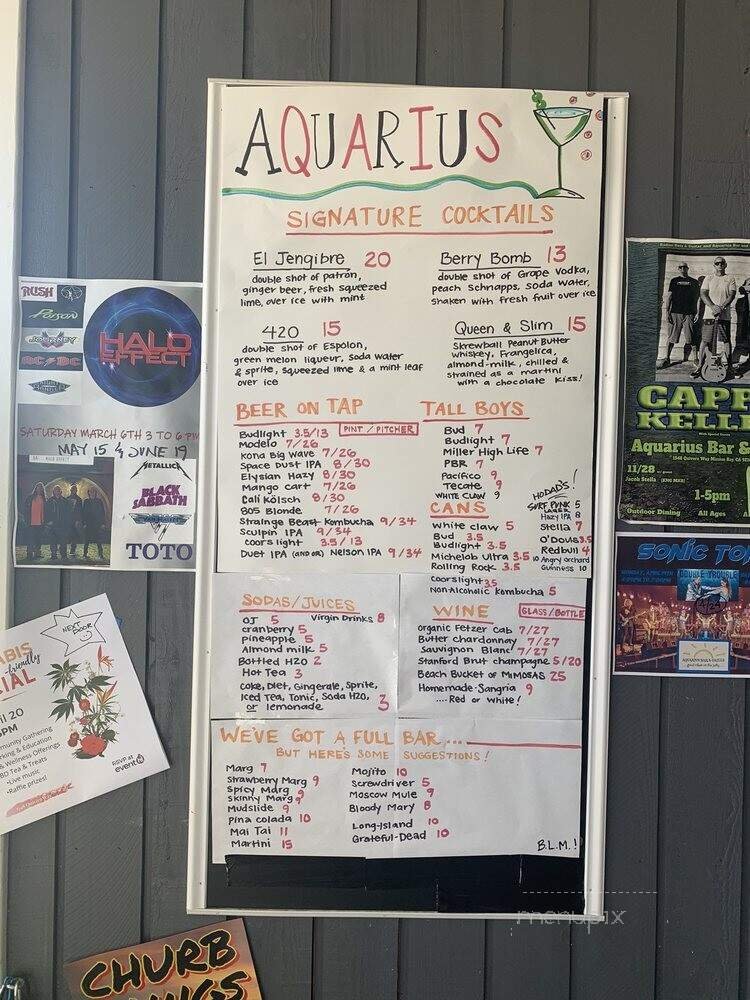 AQUARIUS
SIGNATURE COCKTAILS
El Jengibre 20
double shot of patrón,
ginger beer, fresh squeezed
lime, over ice with mint
Berry Bomb 13
double shot of Grape Vodka,
peach Schnapps, soda water,
shaken with fresh fruit over ice
420 15
double shot of Espolon,
green melon liqueur, soda water
& sprite, squeezed lime & a mint leaf
over ice
Queen & Slim 15
Skrewball Peanut Butter
whiskey, Frangelica,
almond-milk, chilled &
strained as a martini
with a chocolate kiss!
BEER ON TAP
PINT / PITCHER
Budlight 3.5/13
Modelo 7/26
Kona Big Wave 7/26
Space Dust IPA 8/30
Elysian Hazy 8/30
Mango Cart 7/26
Cali Kölsch 8/30
805 Blonde 7/26
Strainge Beast Kombucha 9/34
Sculpin IPA 9/34
Coors light 3.5/13
Duet IPA (AND/OR) Nelson IPA 9/34
TALL BOYS
Bud 7
Budlight 7
Miller High Life 7
PBR 7
Pacifico 9
Tecate 9
WHITE CLAW 9
CANS
White claw 5
Bud 3.5
Budlight 3.5
Michelob Ultra 3.5
Rolling Rock 3.5
Coorslight 3.5
Non-Alcoholic Kombucha 5
HODADS!
SURF PUNK 5
LAGER
Hazy IPA 8
Stella 7
O'Douls 3.5
Redbull 4
10 Angry orchard
Guinness 10
SODAS/JUICES
OJ 5
Virgin Drinks 8
cranberry 5
pineapple 5
Almond milk 5
Bottled H2O 2
Hot Tea 3
Coke, Diet, Gingerale, Sprite,
Iced Tea, Tonic, Soda H2O, 3
or lemonade
WINE
GLASS/BOTTLE
organic Fetzer Cab 7/27
Butter chardonnay 7/27
Sauvignon Blanc 7/27
Stanford Brut champagne 5/20
Beach Bucket of MIMOSAS 25
Homemade-Sangria 9
....Red or white!
WE'VE GOT A FULL BAR....
BUT HERE'S SOME SUGGESTIONS!
Marg 7
Strawberry Marg 9
Spicy Marg 9
Skinny Marg 9
Mudslide 9
pina colada 10
Mai Tai 11
Martini 15
Mojito 10
Screwdriver 5
Moscow Mule 9
Bloody Mary 8
Long-Island 10
Grateful-Dead 10
B.L.M.!
RUSH
POISON
JOURNEY
AC/DC
HALO
EFFECT
SATURDAY MARCH 6TH 3 TO 6 PM
MAY 15 & JUNE 19
METALLICA
BLACK
SABBATH
VAN HALEN
TOTO
NEXT
DOOR
ABIS
-friendly
CIAL
il 20
PM
munity Gathering
rking & Education
& Wellness Offerings
BD Tea & Treats
•Live music
•Raffle prizes!
RSVP at
event
CHURB
INGS
CAPP
KELL
Aquarius Bar &
11/28
Jacob Stella
1-5pm
Outdoor Dining
All Ages
SONIC TO
DOUBLE TROUBLE
4/24
menupix